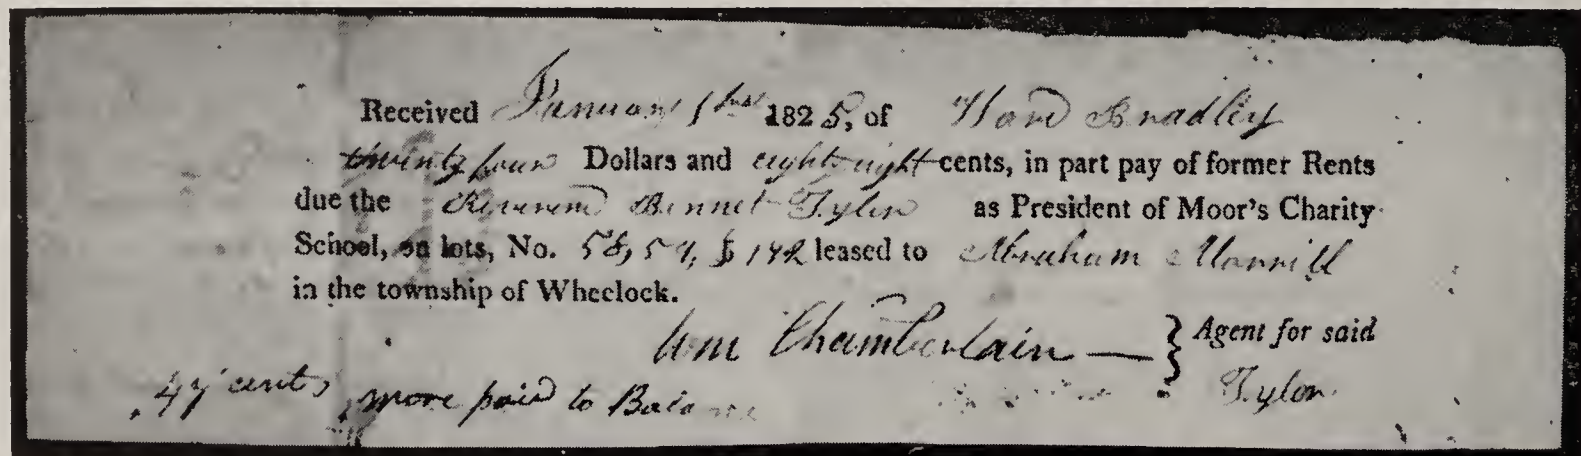 Received January 1st 1825, of Ward Bradley
twenty four Dollars and eighty eight cents, in part pay of former Rents
due the Reverend Bennet Tyler as President of Moor's Charity
School, on lots, No. 58, 59, & 142 leased to Abraham Morrill
in the township of Wheelock.
Wm Chamberlain — } Agent for said
Tyler.
47 cents more paid to Balance